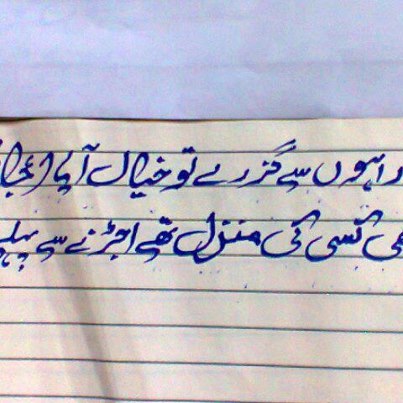 راہوں سے گزرے تو خیال آیا
کسی کی منزل تھے اجڑنے سے پہلے